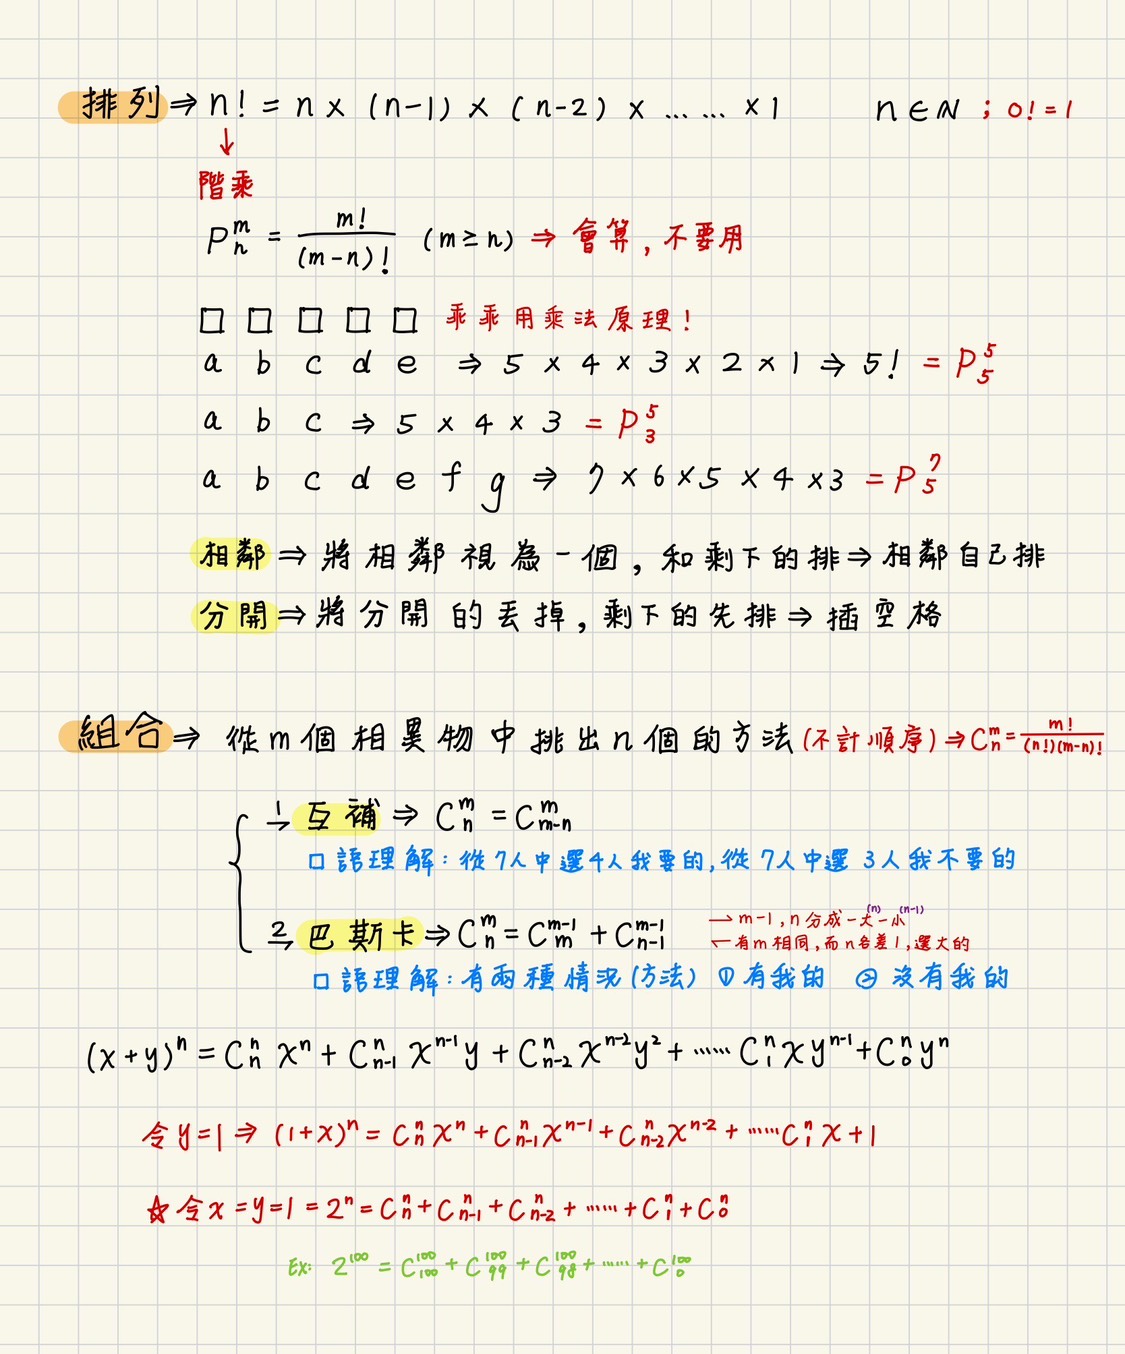 排列 ⇒ n! = n × (n-1) × (n-2) × ... ... × 1 n ∈ N ; 0! = 1
↓
階乘
P^m_n = m!/(m-n)! (m ≥ n) ⇒ 會算, 不要用
□ □ □ □ □ 乖乖用乘法原理!
a b c d e ⇒ 5 × 4 × 3 × 2 × 1 ⇒ 5! = P^5_5
a b c ⇒ 5 × 4 × 3 = P^5_3
a b c d e f g ⇒ 7 × 6 × 5 × 4 × 3 = P^7_5
相鄰 ⇒ 將相鄰視為一個, 和剩下的排 ⇒ 相鄰自己排
分開 ⇒ 將分開的丟掉, 剩下的先排 ⇒ 插空格
組合 ⇒ 從m個相異物中排出n個的方法 (不計順序) ⇒ C^m_n = m!/(n!)(m-n)!
1→ 互補 ⇒ C^m_n = C^m_{m-n}
□ 語理解: 從7人中選4人我要的, 從7人中選3人我不要的
2→ 巴斯卡 ⇒ C^m_n = C^{m-1}_m + C^{m-1}_{n-1}
→ m-1, n 分成一大(n)一小(n-1)
← 有m相同, 而n各差1, 選大的
□ 語理解: 有兩種情況(方法) ① 有我的 ② 沒有我的
(x+y)^n = C^n_n x^n + C^n_{n-1} x^{n-1}y + C^n_{n-2} x^{n-2}y^2 + ...... C^n_1 xy^{n-1} + C^n_0 y^n
令 y=1 ⇒ (1+x)^n = C^n_n x^n + C^n_{n-1} x^{n-1} + C^n_{n-2} x^{n-2} + ...... C^n_1 x + 1
☆ 令 x=y=1 = 2^n = C^n_n + C^n_{n-1} + C^n_{n-2} + ...... + C^n_1 + C^n_0
Ex: 2^100 = C^100_100 + C^100_99 + C^100_98 + ...... + C^100_0